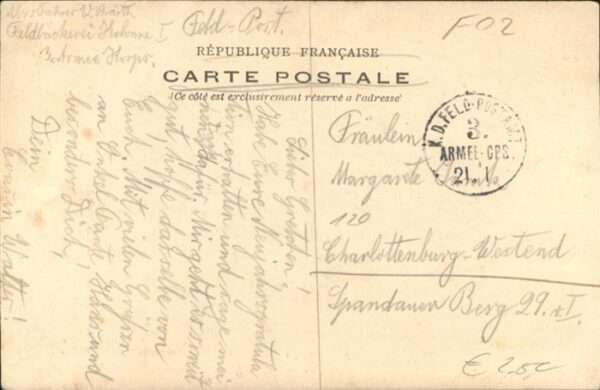 Feld-Post.
Feldbäckerei Kolonne I
3. Armee Korps.
F02
RÉPUBLIQUE FRANÇAISE
CARTE POSTALE
(Ce côté est exclusivement réservé à l'adresse)
K.D.FELD-POSTAMT
3.
ARMEE-CPS.
21.1
Fräulein
Margarete
120
Charlottenburg-Westend
Spandauer Berg 29. I
€ 2.50
Liebes Gretchen!
Habe Eure Neujahrsgratula
tion erhalten und sage mei
nen Mir geht es somit
gut, hoffe dasselbe von
Euch. Mit vielen Grüßen
an Onkel Tante und
besonders Dich,
Dein
Cousin Walter!